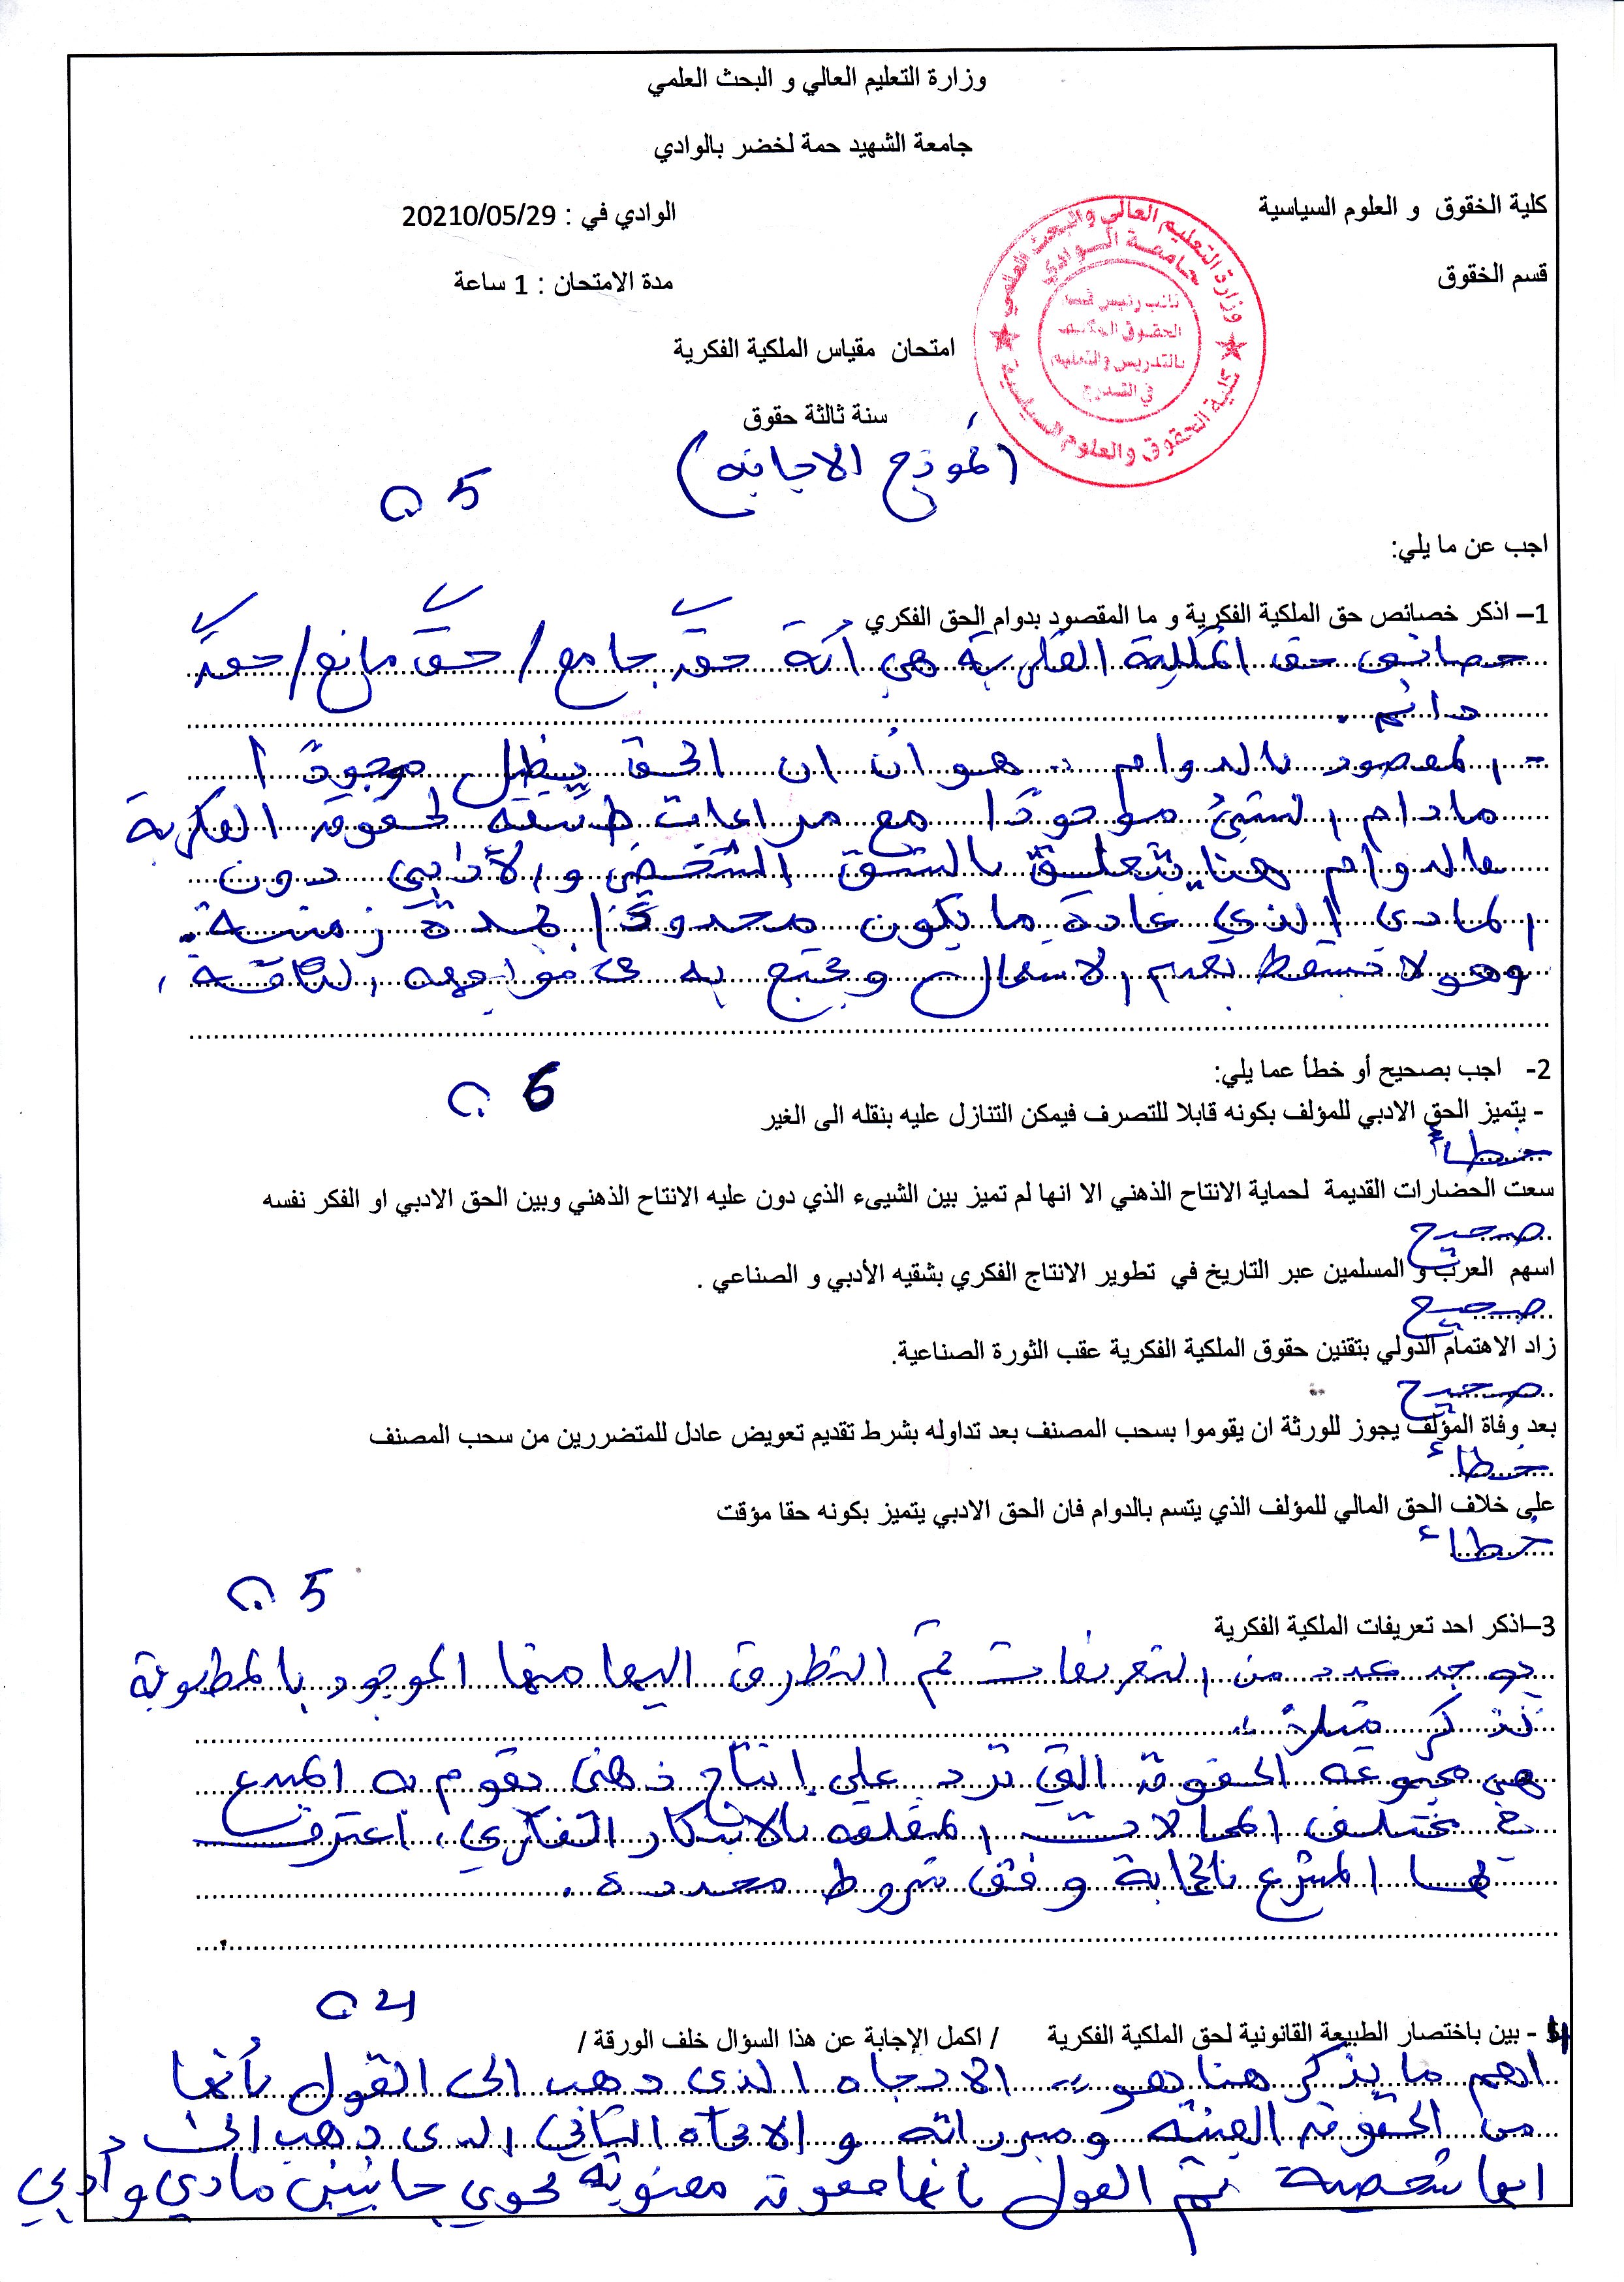 وزارة التعليم العالي و البحث العلمي
جامعة الشهيد حمة لخضر بالوادي
كلية الخقوق و العلوم السياسية
الوادي في : 20210/05/29
قسم الخقوق
مدة الامتحان : 1 ساعة
وزارة التعليم العالي والبحث العلمي
جامعة الوادي
نائب رئيس قسم
الحقوق المكلف
بالتدريس والتعليم
في التدرج
كلية الحقوق والعلوم السياسية
امتحان مقياس الملكية الفكرية
سنة ثالثة حقوق
(نموذج الاجابة)
5 ن
اجب عن ما يلي:
1– اذكر خصائص حق الملكية الفكرية و ما المقصود بدوام الحق الفكري
خصائص حق الملكية الفكرية هي أنه حق جامع / حق مانع / حق
دائم .
- المقصود بالدوام : هو ان الحق يظل موجودًا
مادام الشيئ موجودًا مع مراعات طبيعة الحقوق الفكرية
فالدوام هنا يتعلق بالشق الشخصي والأدبي دون
المادى الذي عادة ما يكون محدودًا بمدة زمنية.
وهو لا يسقط بعدم الاستعمال ويحتج به في مواجهة الكافة،
2- اجب بصحيح أو خطأ عما يلي:
6 ن
- يتميز الحق الادبي للمؤلف بكونه قابلا للتصرف فيمكن التنازل عليه بنقله الى الغير
خطأ
سعت الحضارات القديمة لحماية الانتاح الذهني الا انها لم تميز بين الشيىء الذي دون عليه الانتاح الذهني وبين الحق الادبي او الفكر نفسه
صحيح
اسهم العرب و المسلمين عبر التاريخ في تطوير الانتاج الفكري بشقيه الأدبي و الصناعي .
صحيح
زاد الاهتمام الدولي بتقنين حقوق الملكية الفكرية عقب الثورة الصناعية.
صحيح
بعد وفاة المؤلف يجوز للورثة ان يقوموا بسحب المصنف بعد تداوله بشرط تقديم تعويض عادل للمتضررين من سحب المصنف
خطاء
على خلاف الحق المالي للمؤلف الذي يتسم بالدوام فان الحق الادبي يتميز بكونه حقا مؤقت
خطاء
5 ن
3–اذكر احد تعريفات الملكية الفكرية
يوجد عدد من التعريفات تم التطرق اليها منها الموجود بالمطبوعة
نذكر مثلاً :
هي مجموعة الحقوق التي ترد على إنتاج ذهنى يقوم به المبدع
في مختلف المجالات المتعلقة بالابتكار الفكري، اعترف
لها المشرع بالحماية وفق شروط محددة .
4 ن
4 - بين باختصار الطبيعة القانونية لحق الملكية الفكرية / اكمل الإجابة عن هذا السؤال خلف الورقة /
اهم ما يذكر هنا هو : الاتجاه الذى ذهب الى القول بأنها
من الحقوق العينية ومبرراته و الاتجاه الثاني الذى ذهب الى
انها شخصية ثم القول بانها حقوق معنوية تحوي جانبين مادي وأدبي